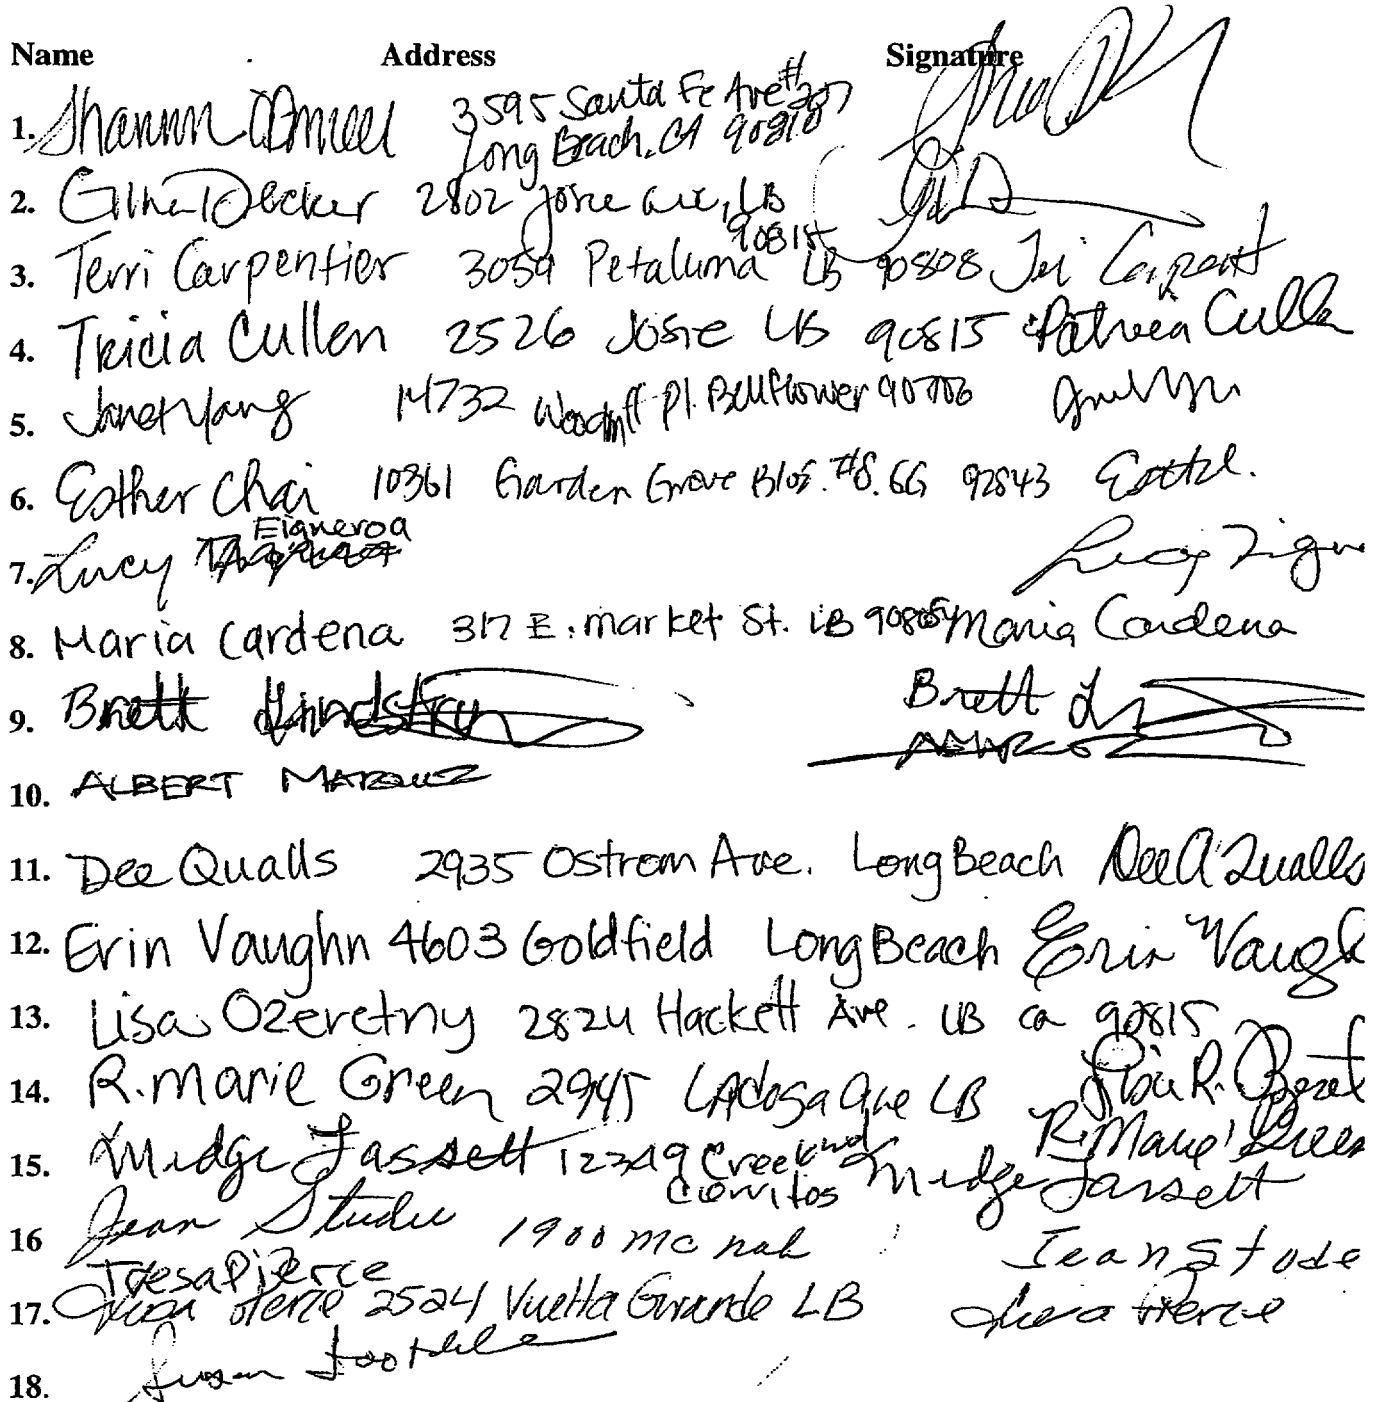 Name Address Signature
1. Shannon 3595 Santa Fe Ave #207
Long Beach, CA 90810
2. Decker 2802 Josie Ave, LB
90815
3. Terri Carpentier 3059 Petaluma LB 90808
4. Tricia Cullen 2526 Josie LB 90815 Patricia Cullen
5. Janet Yang 14732 Woodruff Pl. Bellflower 90706
6. Esther Chai 10361 Garden Grove Blvd. #8. GG 92843
Figueroa
7. Lucy Lucy Figue
8. Maria Cardena 317 E. market St. LB 90805 Maria Cardena
9. Brett Lindstrom Brett
10. ALBERT MARQUEZ
11. Dee Qualls 2935 Ostrom Ave. Long Beach Dee A Qualls
12. Erin Vaughn 4603 Goldfield Long Beach Erin Vaugh
13. Lisa Ozeretny 2824 Hackett Ave. LB ca 90815
14. R. Marie Green 2945 LAdoga Ave LB
R. Marie Green
15. Midge Fassett 12349 Creekwood Midge Fassett
Cerritos
16 Jean 1900 mc nab Jean
Teresa Pierce
17. Pierce 2524 Vuelta Grande LB Pierce
18. Susan